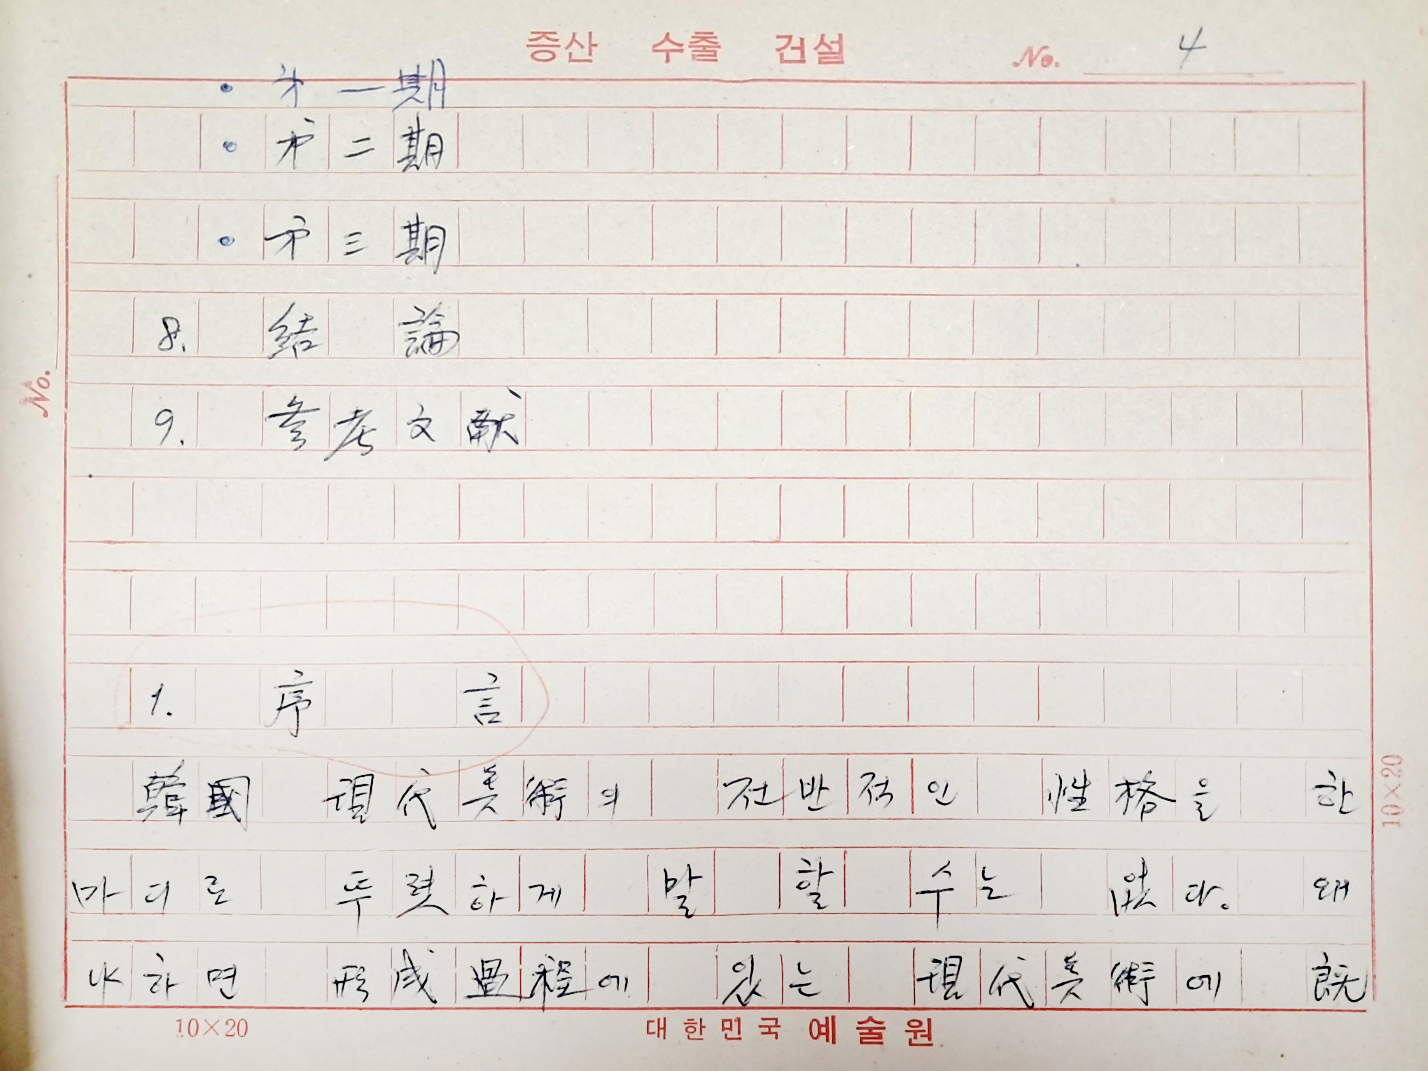 증산 수출 건설
No. 4
• 第一期
• 第二期
• 第三期
8. 結 論
9. 参考文献
1. 序 言
韓國 現代美術의 전반적인 性格을 한
마디로 뚜렷하게 말 할 수는 없다. 왜
냐하면 形成過程에 있는 現代美術에 旣
No.
10×20
10×20
대한민국 예술원